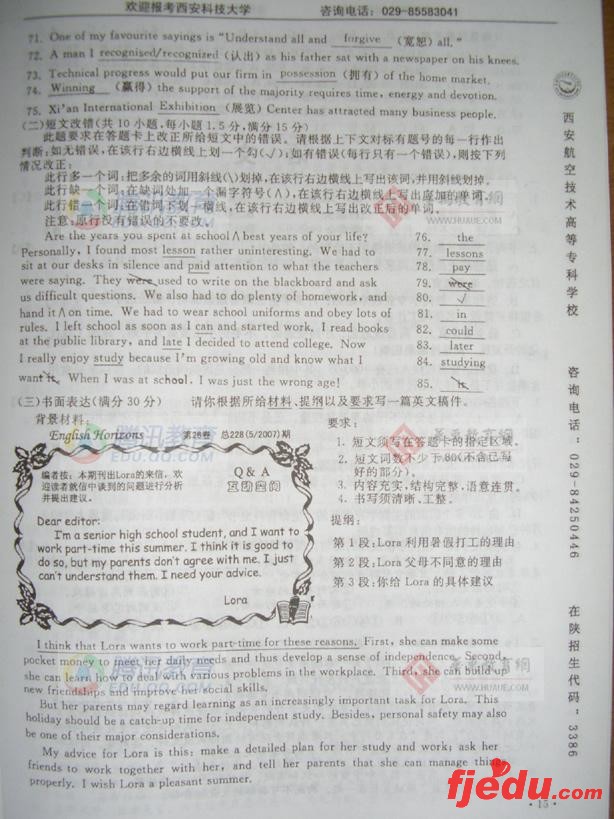 欢迎报考西安科技大学 咨询电话：029-85583041
71. One of my favourite sayings is "Understand all and forgive (宽恕) all."
72. A man I recognised/recognized (认出) as his father sat with a newspaper on his knees.
73. Technical progress would put our firm in possession (拥有) of the home market.
74. Winning (赢得) the support of the majority requires time, energy and devotion.
75. Xi'an International Exhibition (展览) Center has attracted many business people.
(二)短文改错(共 10 小题,每小题 1.5 分,满分 15 分)
此题要求在答题卡上改正所给短文中的错误。请根据上下文对标有题号的每一行作出
判断:如无错误,在该行右边横线上划一个勾(√);如有错误(每行只有一个错误),则按下列
情况改正:
此行多一个词:把多余的词用斜线(\)划掉,在该行右边横线上写出该词,并用斜线划掉。
此行缺一个词:在缺词处加一个漏字符号(∧),在该行右边横线上写出应加的词。
此行错一个词:在错词下划一横线,在该行右边横线上写出改正后的单词。
注意:原行没有错误的不要改。
Are the years you spent at school∧best years of your life? 76. the
Personally, I found most lesson rather uninteresting. We had to 77. lessons
sit at our desks in silence and paid attention to what the teachers 78. pay
were saying. They were used to write on the blackboard and ask 79. were
us difficult questions. We also had to do plenty of homework, and 80. √
hand it∧on time. We had to wear school uniforms and obey lots of 81. in
rules. I left school as soon as I can and started work. I read books 82. could
at the public library, and late I decided to attend college. Now 83. later
I really enjoy study because I'm growing old and know what I 84. studying
want it. When I was at school, I was just the wrong age! 85. it
(三)书面表达(满分 30 分) 请你根据所给材料、提纲以及要求写一篇英文稿件。
背景材料:
English Horizons 第28卷 总228(5/2007)期
编者按：本期刊出Lora的来信，欢
迎读者就信中谈到的问题进行分析
并提出建议。
Q & A
互动空间
Dear editor:
I'm a senior high school student, and I want to
work part-time this summer. I think it is good to
do so, but my parents don't agree with me. I just
can't understand them. I need your advice.
Lora
要求:
1. 短文须写在答题卡的指定区域。
2. 短文词数不少于 80(不含已写
好的部分)。
3. 内容充实,结构完整,语意连贯。
4. 书写须清晰、工整。
提纲:
第 1 段:Lora 利用暑假打工的理由
第 2 段:Lora 父母不同意的理由
第 3 段:你给 Lora 的具体建议
I think that Lora wants to work part-time for these reasons. First, she can make some
pocket money to meet her daily needs and thus develop a sense of independence. Second,
she can learn how to deal with various problems in the workplace. Third, she can build up
new friendships and improve social skills.
But her parents may regard learning as an increasingly important task for Lora. This
holiday should be a catch-up time for independent study. Besides, personal safety may also
be one of their major considerations.
My advice for Lora is this: make a detailed plan for her study and work; ask her
friends to work together with her, and tell her parents that she can manage things
properly. I wish Lora a pleasant summer.
· 15 ·
西安航空技术高等专科学校
咨询电话：029-84250446
在陕招生代码：3386
腾讯教育
EDU.QQ.COM
华来教育网
WWW.HUAUE.COM
fjedu.com